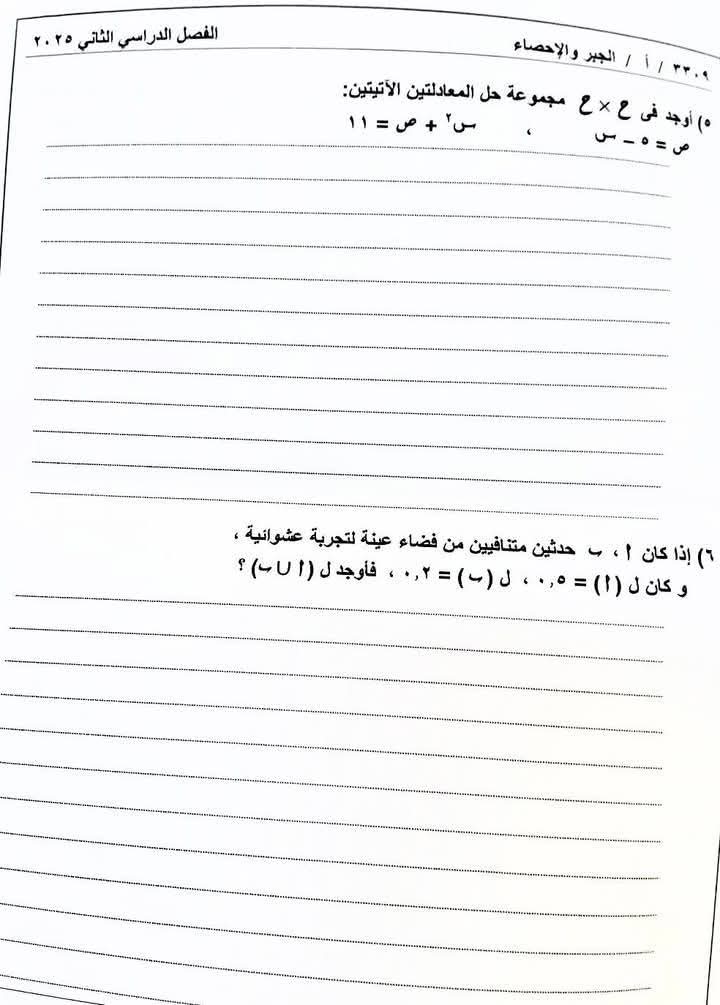 ٣٣٠٩ / أ / الجبر والإحصاء الفصل الدراسي الثاني ٢٠٢٥
٥) أوجد فى ح × ح مجموعة حل المعادلتين الآتيتين:
ص = ٥ – س ، س٢ + ص = ١١
٦) إذا كان أ ، ب حدثين متنافيين من فضاء عينة لتجربة عشوائية ،
و كان ل (أ) = ٠,٥ ، ل (ب) = ٠,٢ ، فأوجد ل (أ ∪ ب) ؟